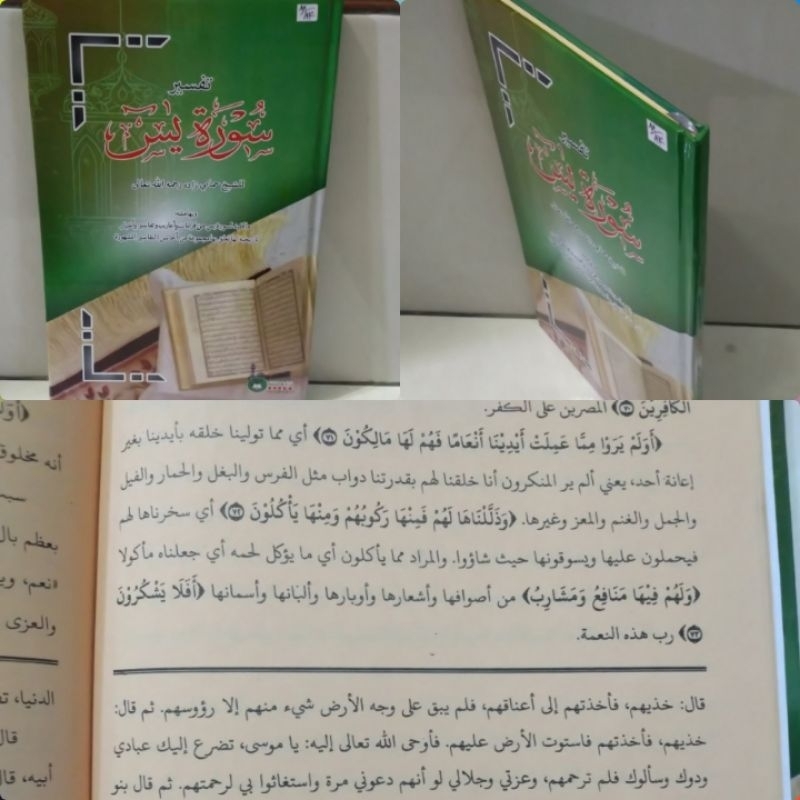 تفسير
سورة يس
للشيخ حمامي زاده رحمه الله تعالى
وبهامشه
تفسير
سورة يس
الكافِرِينَ ﴿٧٠﴾ المصرين على الكفر.
﴿أَوَلَمْ يَرَوْا مِمَّا عَمِلَتْ أَيْدِينَا أَنْعَامًا فَهُمْ لَهَا مَالِكُونَ ﴿٧١﴾ أي مما تولينا خلقه بأيدينا بغير
إعانة أحد، يعني ألم ير المنكرون أنا خلقنا لهم بقدرتنا دواب مثل الفرس والبغل والحمار والفيل
والجمل والغنم والمعز وغيرها. ﴿وَذَلَّلْنَاهَا لَهُمْ فَمِنْهَا رَكُوبُهُمْ وَمِنْهَا يَأْكُلُونَ ﴿٧٢﴾ أي سخرناها لهم
فيحملون عليها ويسوقونها حيث شاؤوا. والمراد مما يأكلون أي ما يؤكل لحمه أي جعلناه مأكولا
﴿وَلَهُمْ فِيهَا مَنَافِعُ وَمَشَارِبُ﴾ من أصوافها وأشعارها وأوبارها وألبانها وأسمانها ﴿أَفَلَا يَشْكُرُونَ
﴿٧٣﴾ رب هذه النعمة.
قال: خذيهم، فأخذتهم إلى أعناقهم، فلم يبق على وجه الأرض شيء منهم إلا رؤوسهم. ثم قال:
خذيهم، فأخذتهم فاستوت الأرض عليهم. فأوحى الله تعالى إليه: يا موسى، تضرع إليك عبادي
ودوك وسألوك فلم ترحمهم، وعزتي وجلالي لو أنهم دعوني مرة واستغاثوا بي لرحمتهم. ثم قال بنو
﴿أَوَلَ
أنه مخلوق
سبح
بعظم بال
«نعم، وي
والعزى
الدنيا، تض
قال
أبيه، قال